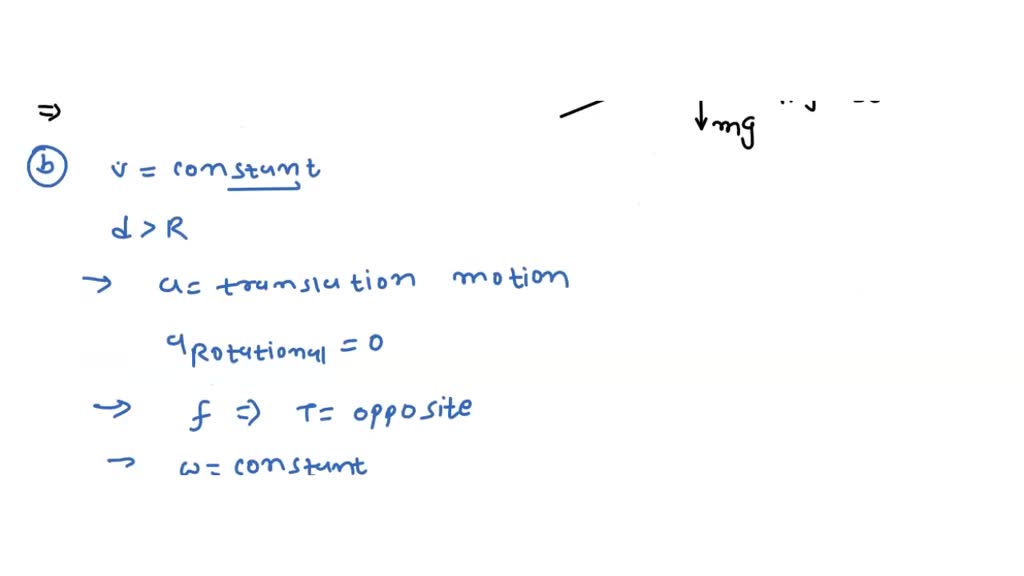 ⇒
↓ mg
b v = constant
d > R
→ a = translation motion
a Rotational = 0
→ f ⇒ τ = opposite
→ ω = constant